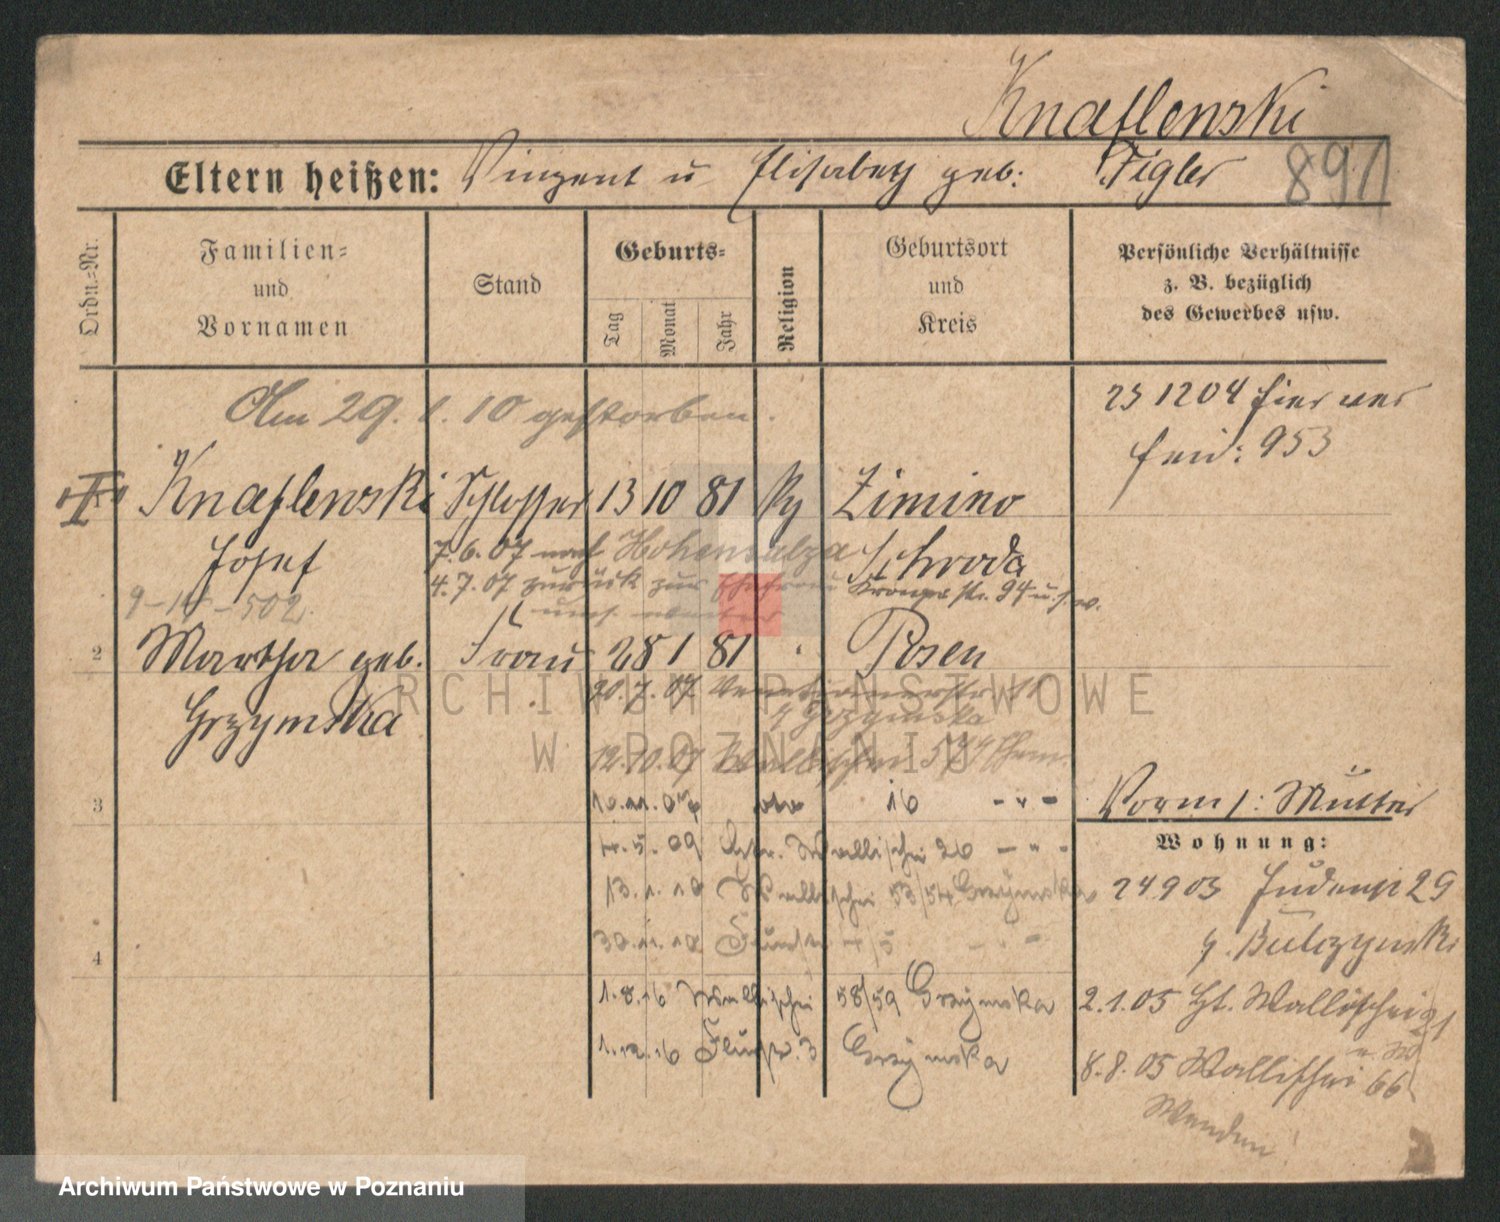 Knaflewski
Eltern heißen: Vinzent u Elisabeth geb: Figler 891
Ordn.-Nr.
Familien-
und
Vornamen
Stand
Geburts-
Tag
Monat
Jahr
Religion
Geburtsort
und
Kreis
Persönliche Verhältnisse
z. B. bezüglich
des Gewerbes usw.
Am 29. 10 gestorben.
23 12 04 hier
953
Knaflewski Schlosser 13 10 81 Zimino
Josef
7.6.07 nach Hohensalza Schroda
4.7.07 zurück zur Ehefrau Kronpr str. 94 u.s.w.
9-11-502
2 Martha geb. Frau 28 1 81 Posen
Grzymska
20.7.07
g Grzymska
12.10.07 Wallischei
3 10.11.07 16 - " -
Vorm : Mutter
Wohnung:
5.09 Wallischei 26 - " -
13.1.10 Wallischei 53/54 Grzymska
24 9 03 Judenstr 29
30.11.10 4/5 - " -
g. Bulczynski
4
1.8.16 Wallischei 58/59 Grzymska
2.1.05 Wallischei
1. 16 Flurstr. 3 Grzymska
8.8.05 Wallischei 66
ARCHIWUM PAŃSTWOWE
W POZNANIU
Archiwum Państwowe w Poznaniu